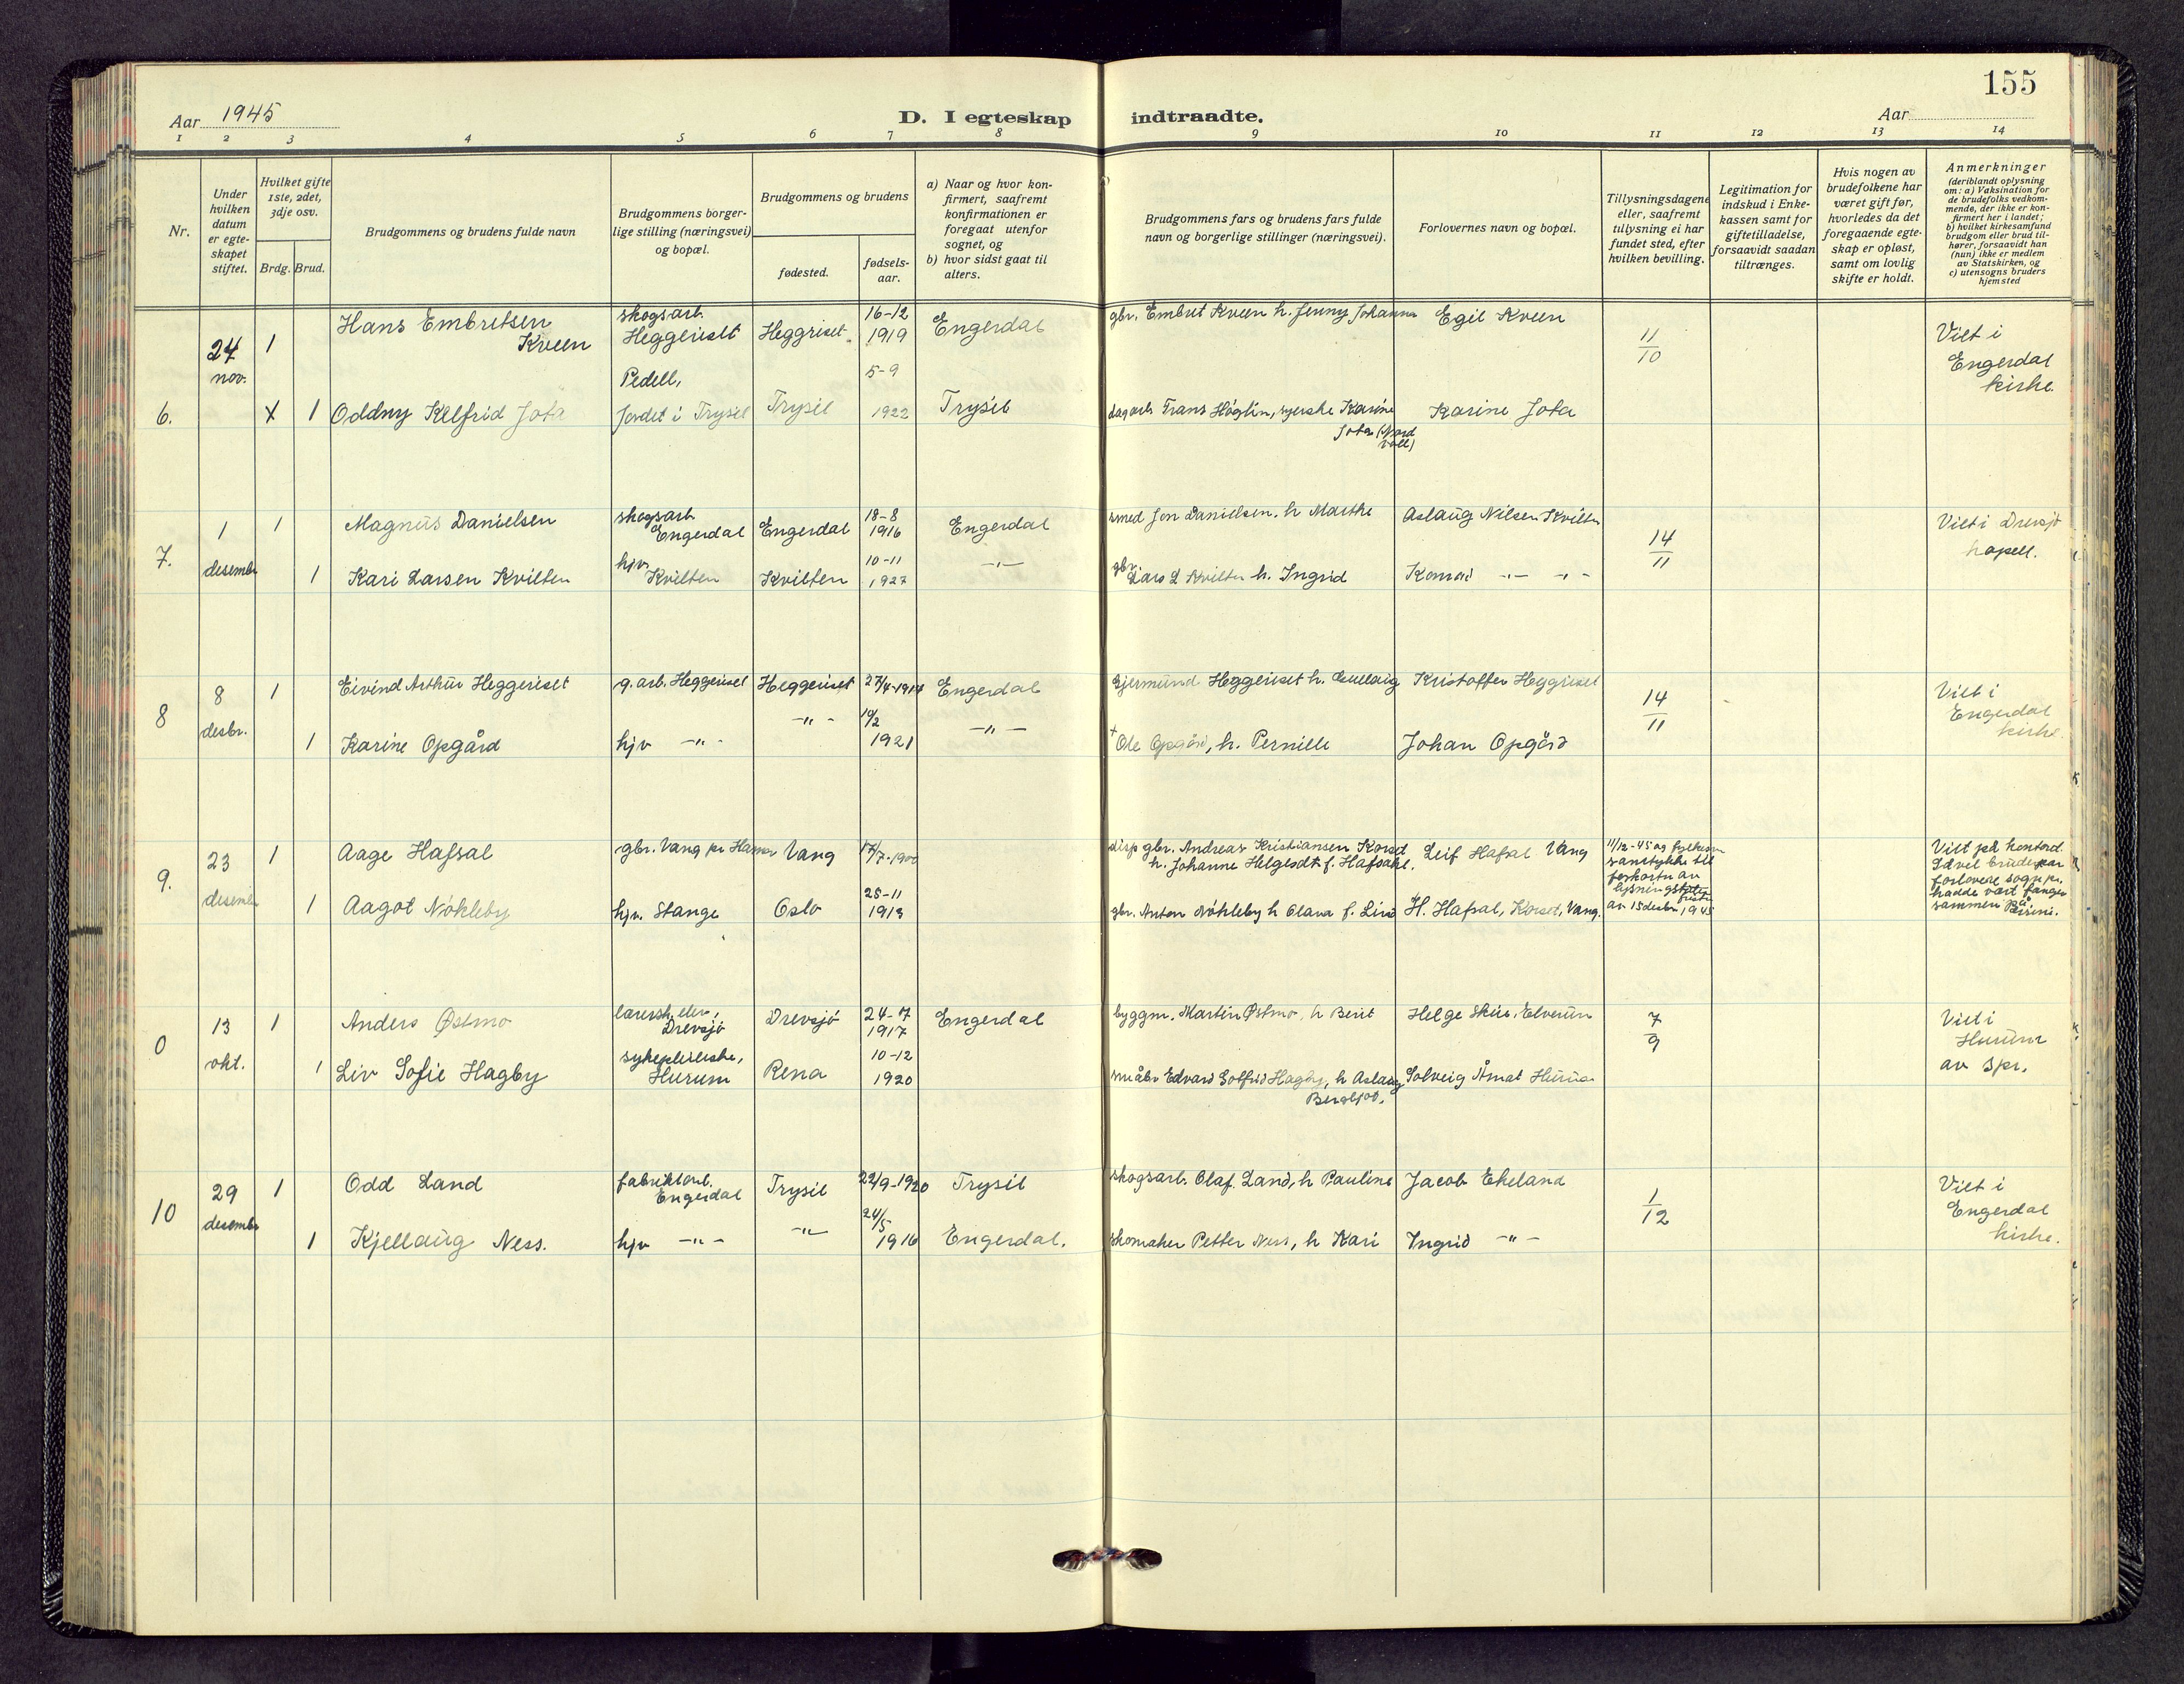 155
Aar 1945
D. I egteskap indtraadte.
Aar
1 2 3 4 5 6 7 8 9 10 11 12 13 14
Nr.
Under hvilken datum er egte-skapet stiftet.
Hvilket gifte 1ste, 2det, 3dje osv.
Brdg. Brud.
Brudgommens og brudens fulde navn
Brudgommens borger-lige stilling (næringsvei) og bopæl.
Brudgommens og brudens
fødested.
fødsels-aar.
a) Naar og hvor kon-firmert, saafremt konfirmationen er foregaat utenfor sognet, og
b) hvor sidst gaat til alters.
Brudgommens fars og brudens fars fulde navn og borgerlige stillinger (næringsvei).
Forlovernes navn og bopæl.
Tillysningsdagene eller, saafremt tillysning ei har fundet sted, efter hvilken bevilling.
Legitimation for indskud i Enke-kassen samt for giftetilladelse, forsaavidt saadan tiltrænges.
Hvis nogen av brudefolkene har været gift før, hvorledes da det foregaaende egte-skap er opløst, samt om lovlig skifte er holdt.
Anmerkninger (deriblandt oplysning om: a) Vaksination for de brudefolks vedkom-mende, der ikke er kon-firmert her i landet; b) hvilket kirkesamfund brudgom eller brud til-hører, forsaavidt han (hun) ikke er medlem av Statskirken, og c) utensogns bruders hjemsted
6. 24 nov.
1 Hans Embretsen Kveen
skogsarb. Heggeriset
Heggriset
16-12 1919
Engerdal
gbr. Embret Kveen h. Jenny Johanna
Egil Kveen
11/10
Viet i Engerdal kirke.
X 1 Oddny Kelfrid Jota
Pedell, Jordet i Trysil
Trysil
5-9 1922
Trysil
dagarb Frans Höglin, syerske Karine Jota (Nordvall)
Karine Jota
7. 1 desembr
1 Magnus Danielsen
skogsarb Engerdal
Engerdal
18-8 1916
Engerdal
smed Jon Danielsen, h Marthe
Aslaug Nilsen Kvilten
14/11
Viet i Drevsjø kapell.
1 Kari Larsen Kvilten
hjv Kvilten
Kvilten
10-11 1927
-"-
gbr. Lars L Kvilten h. Ingrid
Konrad -"- -"-
8 8 desbr.
1 Eivind Arthur Heggeriset
g.arb. Heggeriset
Heggeriset
27/4-1914
Engerdal
Gjermund Heggeriset h. Gullaug
Kristoffer Heggriset
14/11
Viet i Engerdal kirke.
1 Karine Opgård
hjv -"-
-"-
10/2 1921
-"-
+ Ole Opgård, h. Pernille
Johan Opgård
9. 23 desemb
1 Aage Hafsal
gbr. Vang pr Hamar
Vang
17/7-1900
disp gbr. Andreas Kristiansen Korset h. Johanne Helgesdt f. Hafsahl.
Leif Hafsal Vang
11/12-45 og fylkesm samtykke til forkortn av lysningsfristen av 15 desbr. 1945
Viet på kontord. Såvel brudepar forlovere sogn pr. hadde vært fanger sammen på Berg.
1 Aagot Nökleby
hjv. Stange
Oslo
25-11 1913
gbr. Anton Nökleby h Olava f. Lisö
H. Hafsal, Korset, Vang.
0 13 okt.
1 Anders Østmo
lærersk.elev, Drevsjö
Drevsjö
24-7 1917
Engerdal
byggm. Martin Østmo, h Berit
Helge Skur. Elverum
7/9
Viet i Hurum av spr.
1 Liv Sofie Hagby
sykepleierske, Hurum
Rena
10-12 1920
småbr Edvard Golfrid Hagby, h Aslaug Bergljot.
Solveig Åmot Hurum
10 29 desembr
1 Odd Land
fabrikkarb. Engerdal
Trysil
22/9-1920
Trysil
skogsarb. Olaf Land, h Pauline
Jacob Ekeland
1/12
Viet i Engerdal kirke.
1 Kjellaug Ness.
hjv -"-
-"-
24/5 1916
Engerdal.
skomaker Petter Ness, h Kari
Ingrid -"-